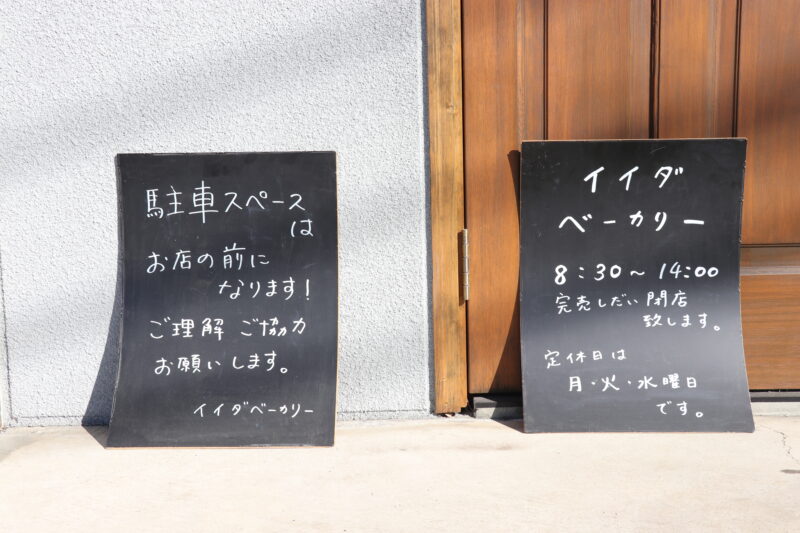 駐車スペース
は
お店の前に
なります!
ご理解 ご協力
お願いします。
イイダベーカリー
イイダ
ベーカリー
8:30~14:00
完売しだい閉店
致します。
定休日は
月・火・水曜日
です。